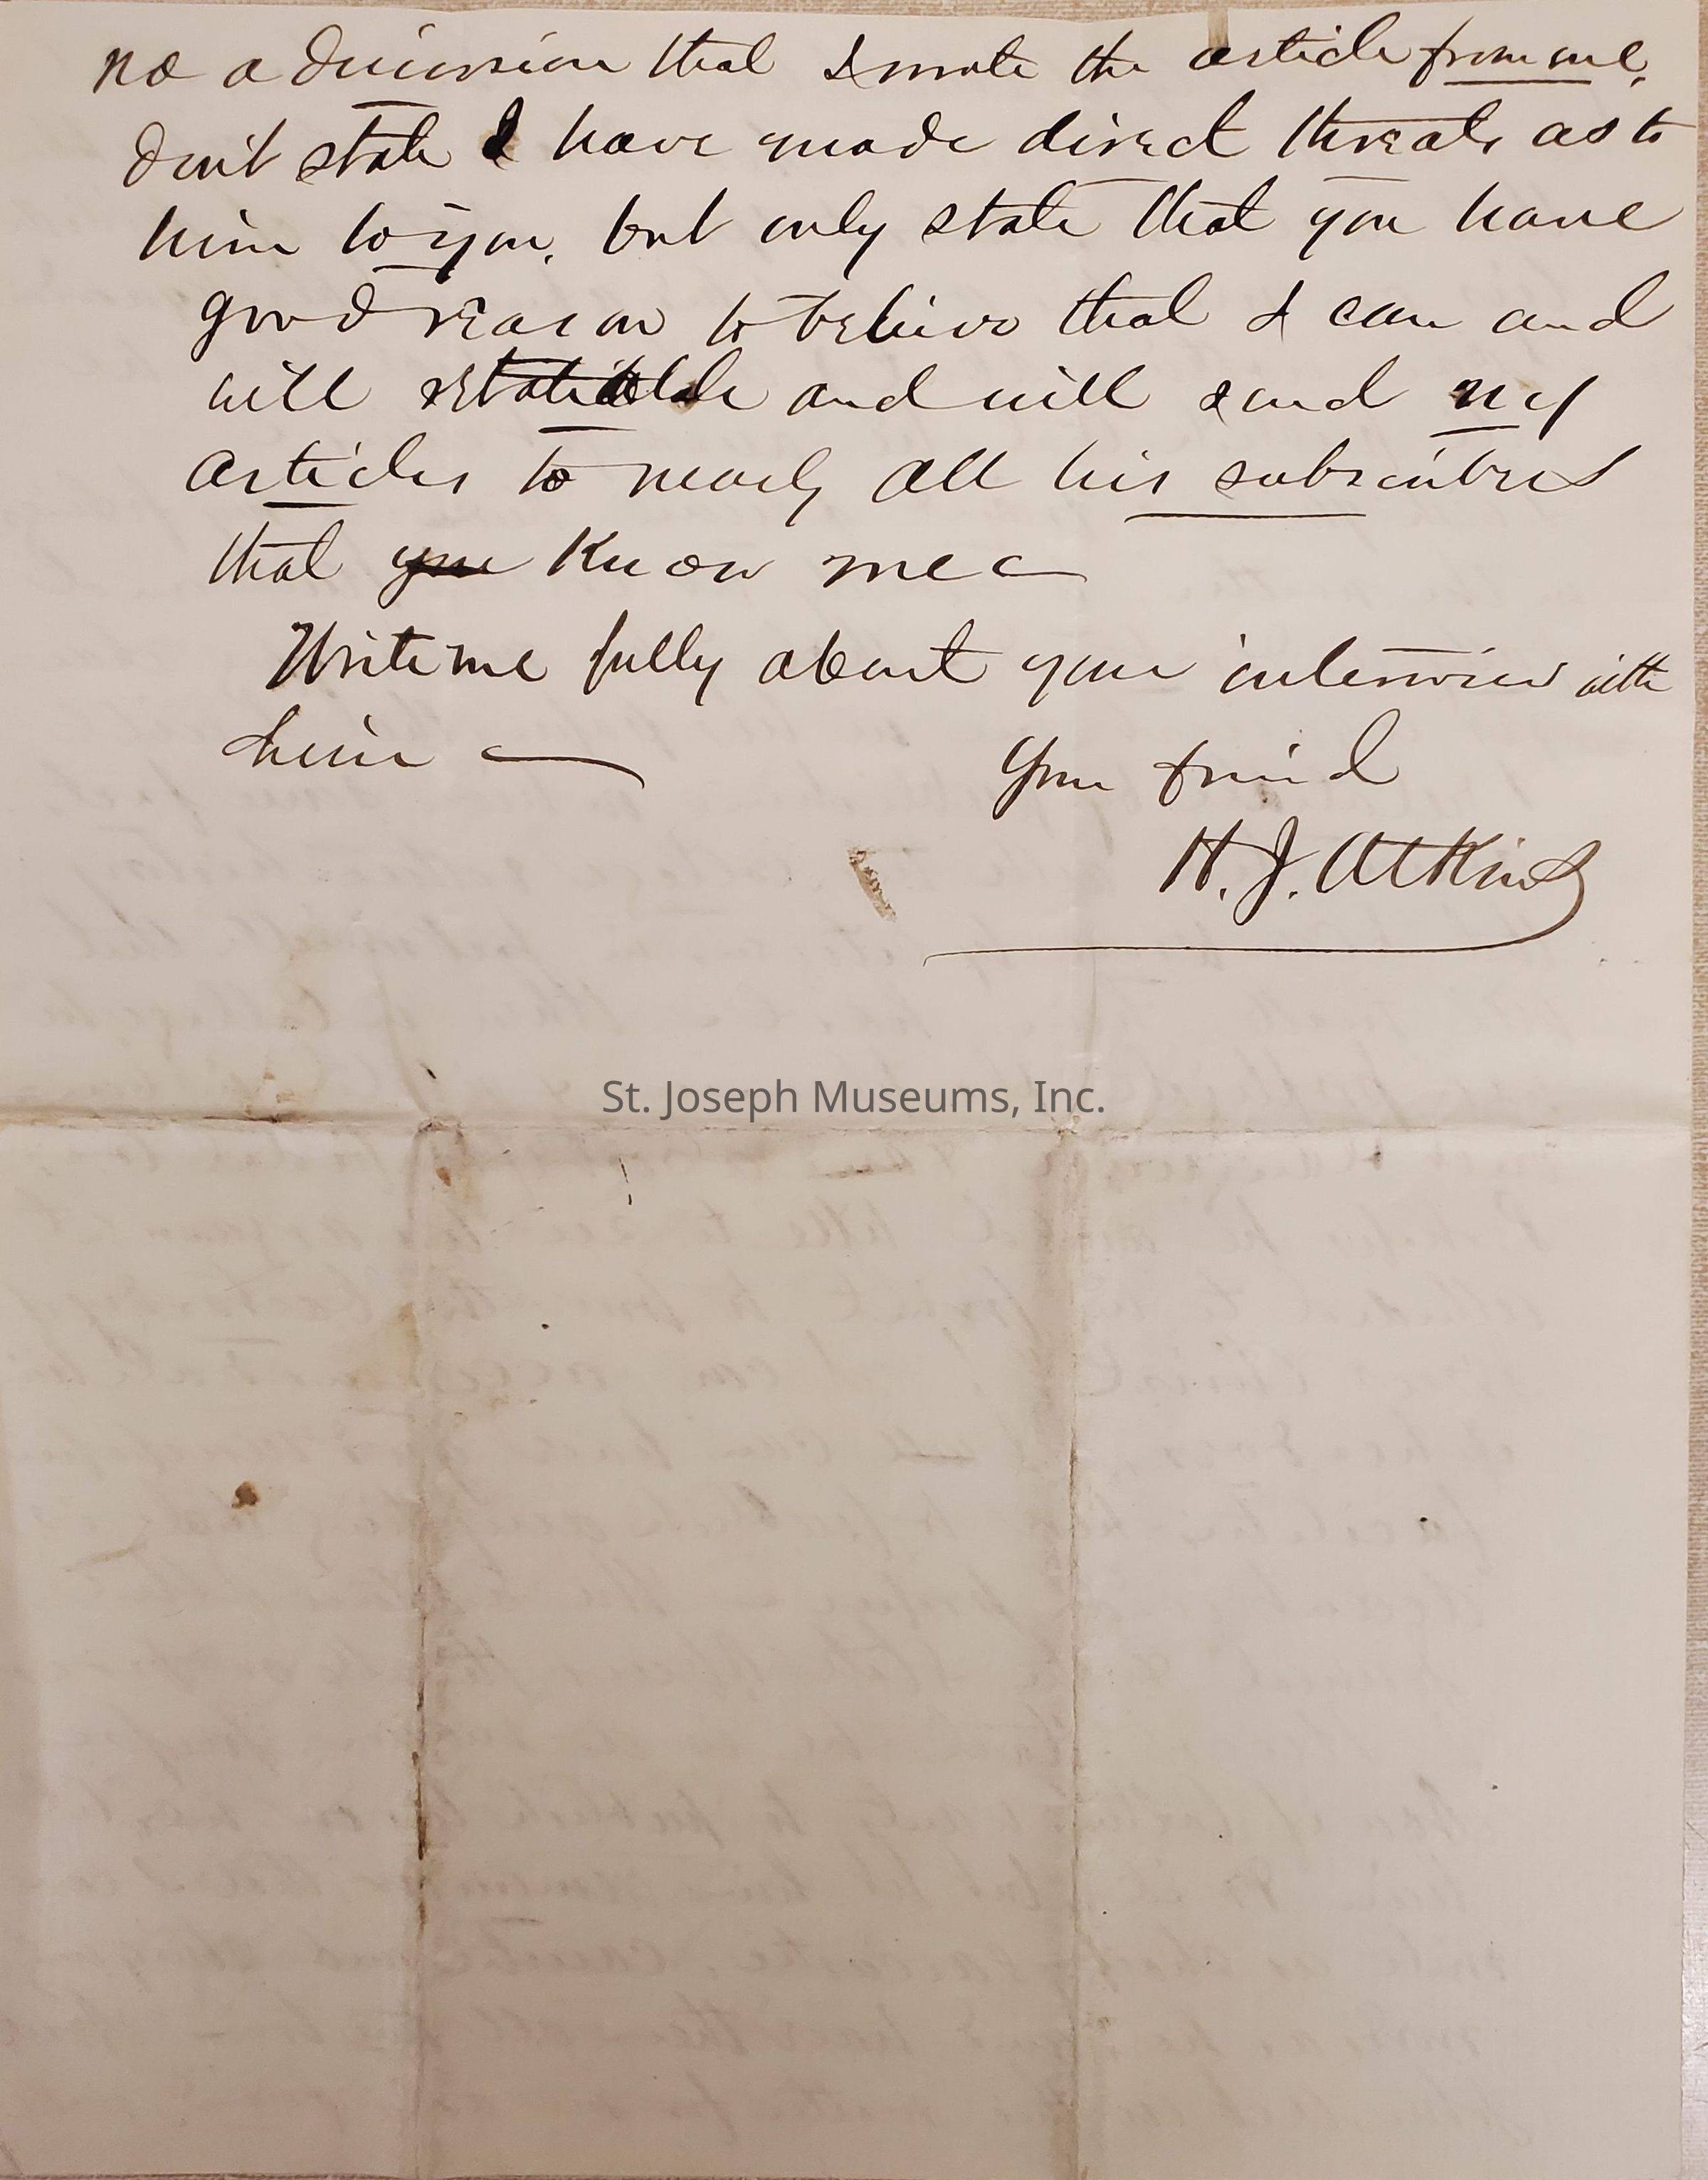 no admission that I wrote the article from me.
Don't state I have made direct threats as to
him to you, but only state that you have
good reason to believe that I can and
will retaliate and will send my
articles to nearly all his subscribers
that you know me
Write me fully about your interview with
him
Your friend
H. J. Atkins
St. Joseph Museums, Inc.